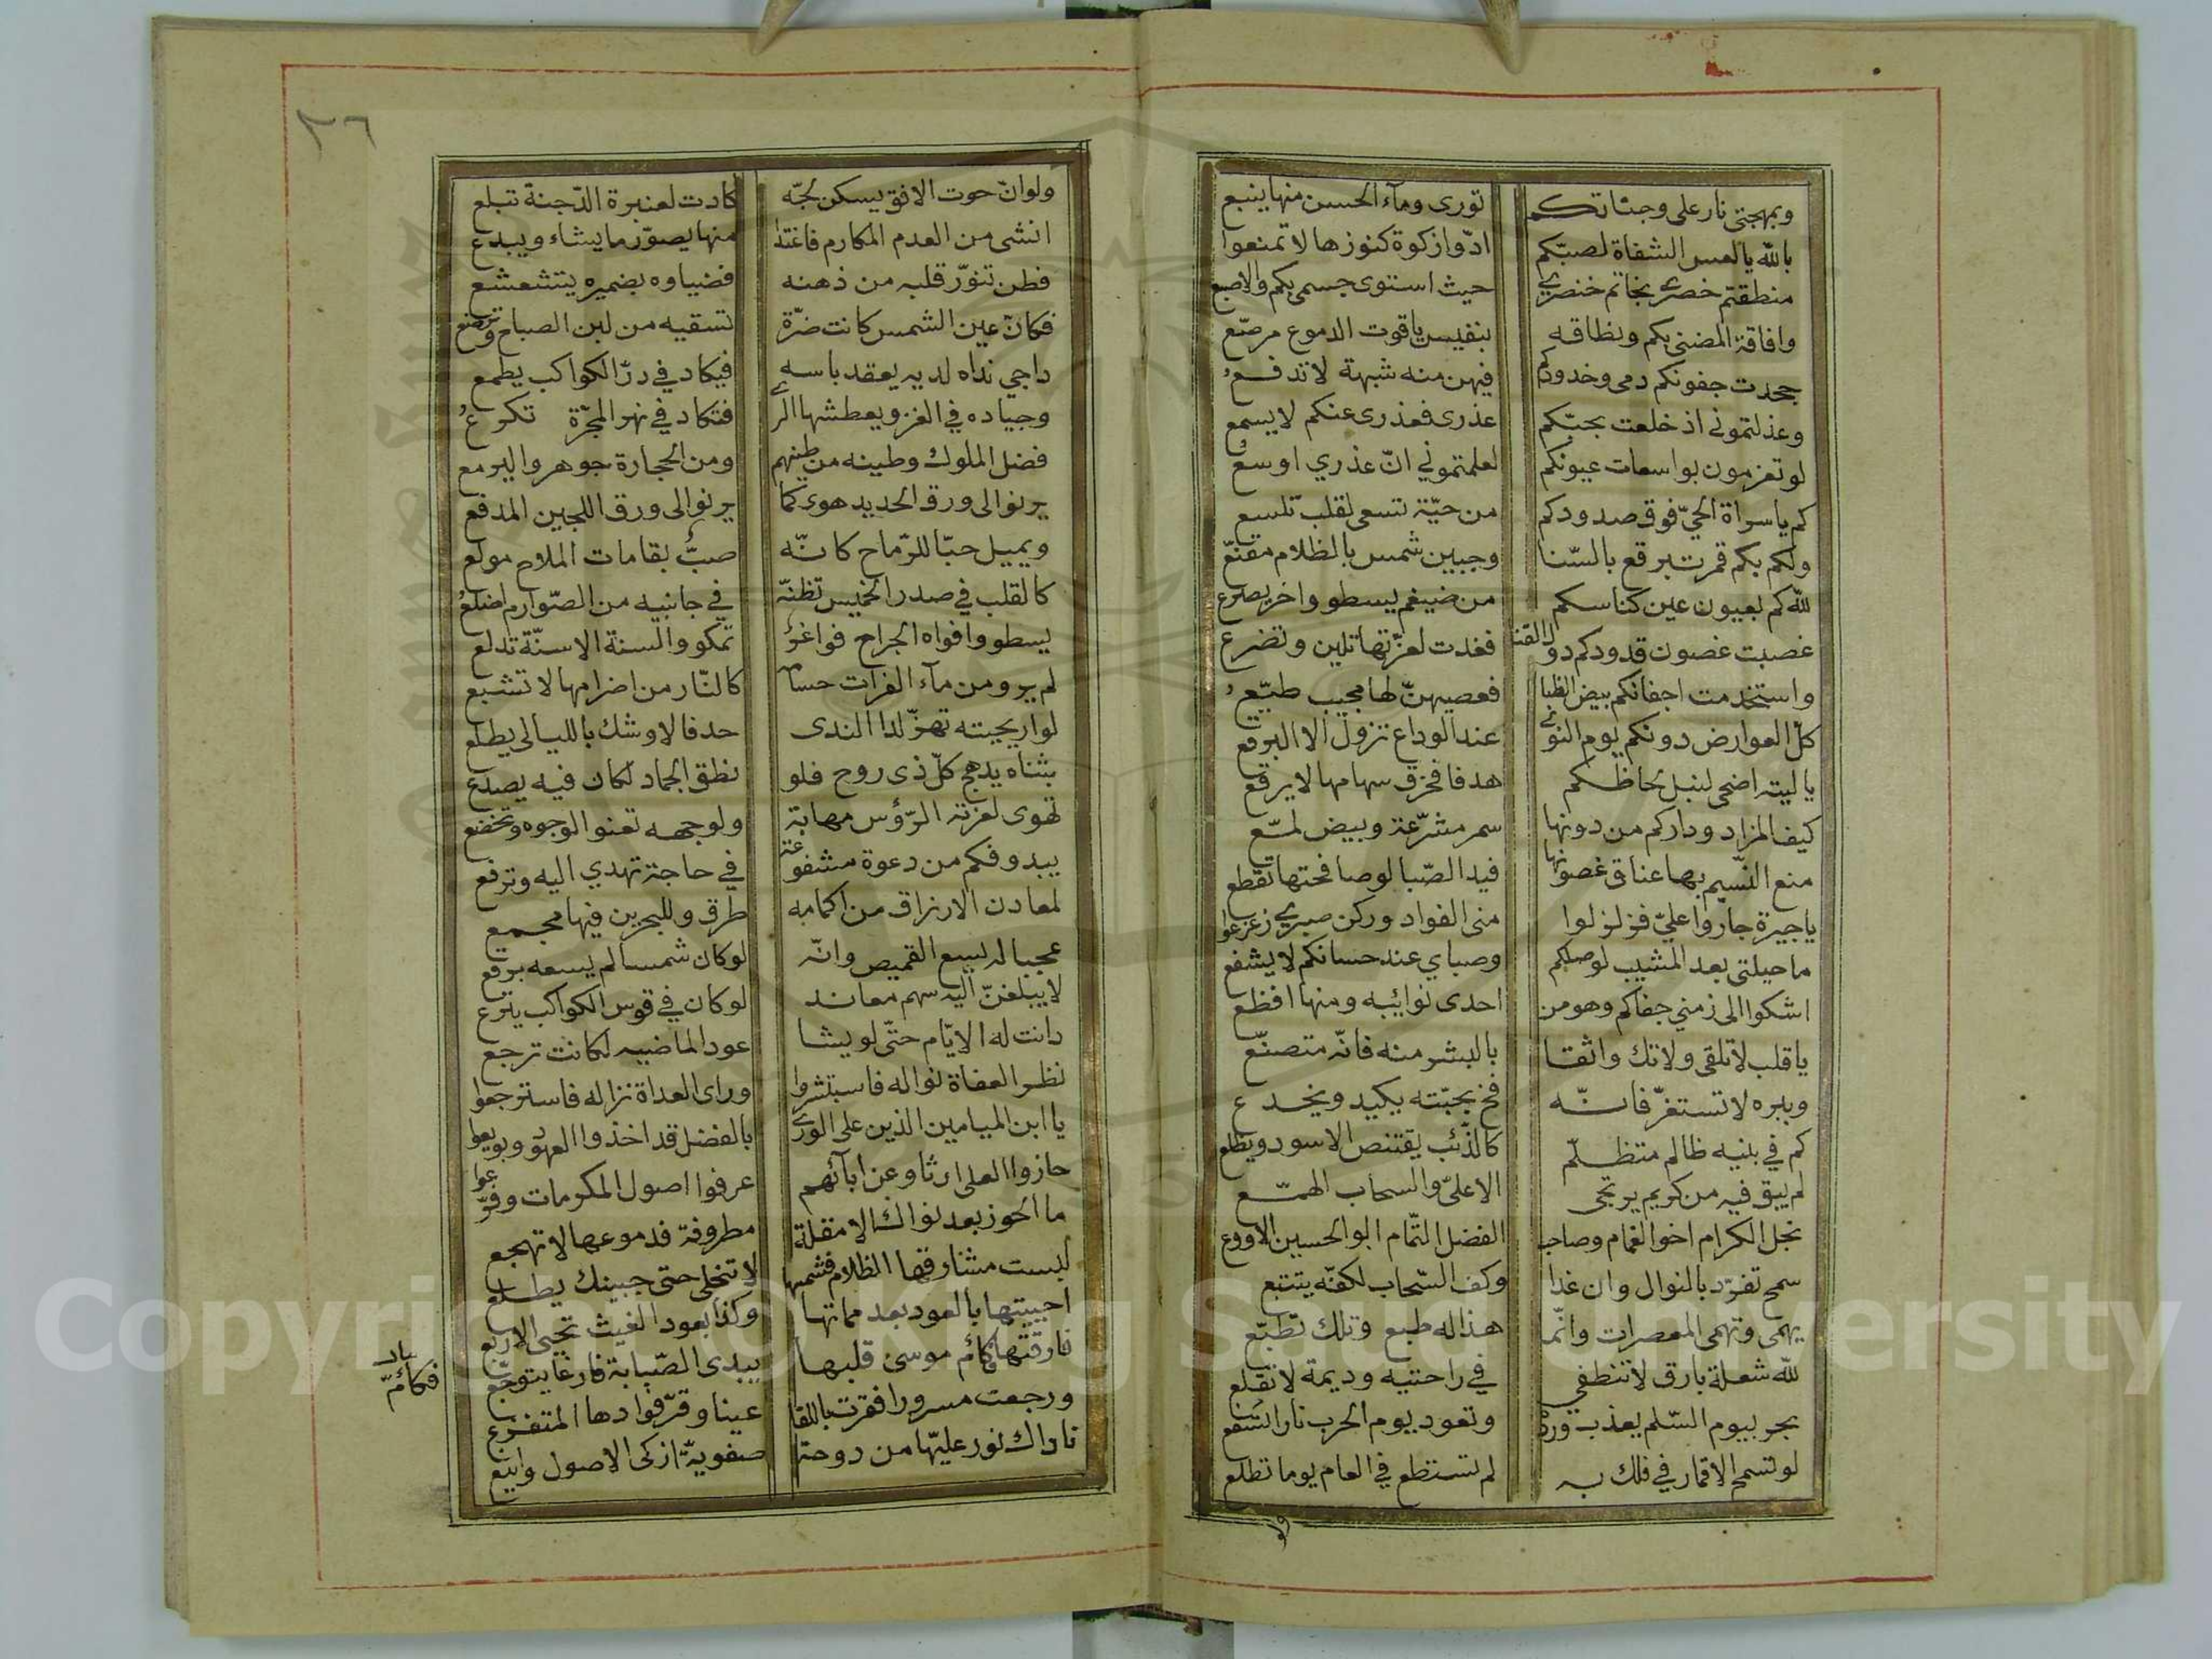 وبمهجتي نار على وجناتكم توری ومآء الحسن منها ينبع
بالله يا لعس الشفاة لصبّكم ادّوا زكوة كنوزها لا تمنعوا
منطقتم خصري بخاتم خنصري حيث استوى جسمي بكم والاصبع
وافاقة المضنى بكم ونطاقه بنفيس ياقوت الدموع مرصّع
جحدت جفونكم دمى وخدودكم فيهن منه شبهة لا تدفع
وعذلتموني اذ خلعت بحبّكم عذرى فعذرى عنكم لا يسمع
لو تعزمون بواسعات عيونكم لعلمتموني انّ عذري اوسع
كم يا سراة الحيّ فوق صدودكم من حيّة تسعى لقلب تلسع
ولكم بكم قمر تبرقع بالسّنا وجبين شمس بالظلام مقنّع
لله كم بعيون عين كناسكم من ضيغم يسطو واخر يصرع
غصبت غصون قدودكم دول القنا فغدت لعزّتها تلين وتضرع
واستخدمت اجفانكم بيض الظبا فعصيهنّ لها مجيب طيّع
كلّ العوارض دونكم يوم النوى عند الوداع تزول الا البرقع
يا ليته اضحى لنبل لحاظكم هدفا فخرق سهامها لا يرقع
كيف المزار وداركم من دونها سمر مشرّعة وبيض لمّع
منع النّسيم بها عناق غصونها فيد الصّبا لو صافحتها تقطع
يا جيرة جاروا عليّ فزلزلوا منى الفواد وركن صبري زعزعوا
ما حيلتى بعد المشيب لوصلكم وصباي عند حسانكم لا يشفع
اشكوا الى زمني جفاكم وهو من احدى نوائبه ومنها افظع
يا قلب لا تلقى ولا تك واثقا بالبشر منه فانّه متصنّع
وببره لا تستغرّ فانّه فخ بحبّته يكيد ويخدع
كم في بنيه ظالم متظلّم كالذّئب يقتنص الاسود ويظلع
لم يبق فيه من كريم يرتجى الا علىّ والسحاب الهمّع
نجل الكرام اخو الغمام وصاحب الفضل التّمام ابو الحسين الاروع
سمح تفرّد بالنوال وان غدا وكف السّحاب لكفّه يتتبع
يهمى وتهمى المعصرات وانّما هذا له طبع وتلك تطبّع
لله شعلة بارق لا تنطفي في راحتيه وديمة لا تقلع
بحر بيوم السّلم يعذب ورده وتعود يوم الحرب نارا تسفع
لو تسمح الاقمار في فلك به لم تستطع في العام يوما تطلع
ولو
٢٦
ولو انّ حوت الافق يسكن لجّه كادت لعنبرة الدّجنة تبلع
انشى من العدم المكارم فاغتدا منها يصوّر ما يشاء ويبدع
فطن تنوّر قلبه من ذهنه فضياوه بضميره يتشعشع
فكانّ عين الشمس كانت ضرّة تسقيه من لبن الصباح وترضع
راجي نداه لديه يعقد باسه فيكاد في درّ الكواكب يطمع
وجياده في الغزو يعطشها السرى فتكاد في نهر المجرّة تكرع
فضل الملوك وطينه من طينهم ومن الحجارة جوهر واليرمع
يرنو الى ورق الحديد هوى كما يرنو الى ورق اللجين المدقع
ويميل حبّا للرّماح كانّه صبّ بقامات الملاح مولع
كالقلب في صدر الخميس تظنّه في جانبيه من الصّوارم اضلع
يسطو وافواه الجراح فواغر تمكو والسنة الاسنّة تدلع
لم يرو من مآء الفرات حسامه كالنّار من اضرامها لا تشبع
لو اريحيته تهزّ لدا الندى حدفا لاوشك بالليالى يطلع
بثناه يدهج كلّ ذى روح فلو نطق الجماد لكان فيه يصدع
تهوى لعزته الرّؤس مهابة ولوجهه تعنو الوجوه وتخضع
يبدو فكم من دعوة مشفوعة في حاجة تهدي اليه وترفع
لمعادن الارزاق من اكمامه طرق وللبحرين فيها مجمع
عجبا له يسع القميص وانّه لو كان شمسا لم يسعه برقع
لا يبلغنّ اليه سهم معاند لو كان في قوس الكواكب ينزع
دانت له الايّام حتّى لو يشا عود الماضيه لكانت ترجع
نظر العفاة نواله فاستبشروا وراى العداة نزاله فاسترجعوا
يا ابن الميامين الذين على الورى بالفضل قد اخذوا العهود وبويعوا
حازوا العلى ارثا وعن ابآئهم عرفوا اصول المكرمات وفرّعوا
ما الحوز بعد نواك الا مقلة مطروفة فدموعها لا تهجع
لبست مشارقها الظلام فشمسها لا تنجلى حتى جبينك يطلع
احييتها بالعود بعد مماتها وكذا يعود الغيث تحيى الاربع
فارقتها فكأم موسى قلبها يبدى الصّبابة فارغا يتوجّع
ورجعت مسرورا فقرت باللقا عينا وقرّ فوادها المتفزع
ناداك نور عليّها من دوحة صفويّة ازكى الاصول وابنع
بار
فكأمّ
Copyright © King Saud University